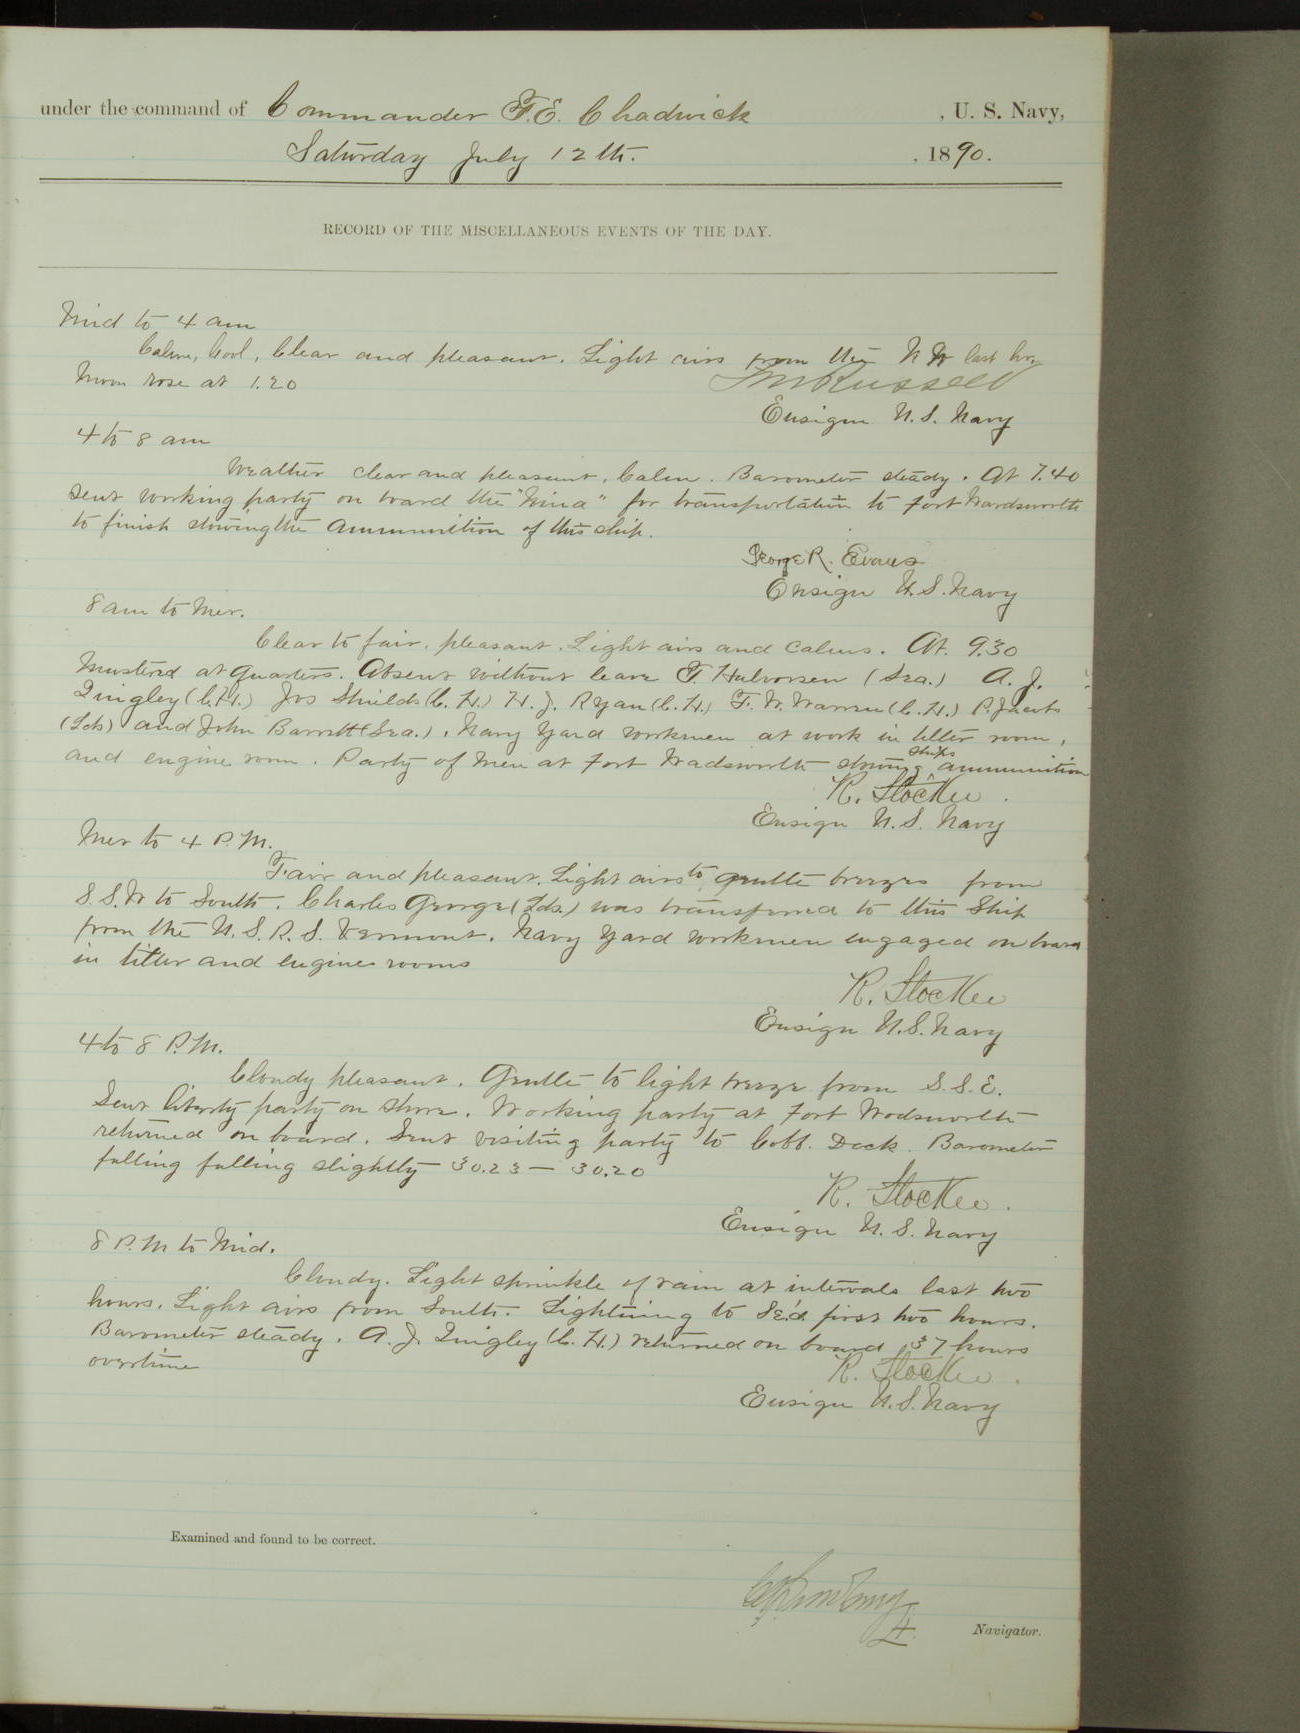 under the command of Commander F.E. Chadwick , U. S. Navy,
Saturday July 12th. , 1890.
RECORD OF THE MISCELLANEOUS EVENTS OF THE DAY.
Mid to 4 am
Calm, Cool, Clear and pleasant. Light airs from the N W last hr.
Moon rose at 1.20
Russell
Ensign U.S. Navy
4 to 8 am
Weather clear and pleasant, Calm. Barometer steady. At 7.40
sent working party on board the "Nina" for transportation to Fort Wardsworth
to finish stowing the ammunition of this ship.
George R. Evans
Ensign U.S. Navy
8 am to Mer.
Clear to fair, pleasant. Light airs and calms. At 9.30
Mustered at quarters. Absent without leave F. Halvorsen (Sea.) A. J.
Quigley (C.H.) Jos Shields (C.H.) H. J. Ryan (C.H.) F. W. Warren (C.H.) P. Jacobs
(Lds) and John Barrett (Sea.). Navy Yard workmen at work in tiller room,
and engine room. Party of Men at Fort Wadsworth stowing ships ammunition
R. Stocker.
Ensign U.S. Navy
Mer to 4 P.M.
Fair and pleasant. Light airs to gentle breezes from
S.S.W to South. Charles George (Lds.) was transferred to this Ship
from the U.S.R.S. Vermont. Navy Yard workmen engaged on board
in tiller and engine rooms
R. Stocker
Ensign U.S. Navy
4 to 8 P.M.
Cloudy pleasant. Gentle to light breeze from S.S.E.
Sent liberty party on shore. Working party at Fort Wadsworth
returned on board. Sent visiting party to Cobb. Dock. Barometer
falling falling slightly 30.23 — 30.20
R. Stocker.
Ensign U.S. Navy
8 P.M to Mid.
Cloudy. Light sprinkle of rain at intervals last two
hours. Light airs from South. Lightning to SE'd first two hours.
Barometer steady. A. J. Quigley (C.H.) returned on board 37 hours
overtime
R. Stocker.
Ensign U.S. Navy
Examined and found to be correct.
Navigator.